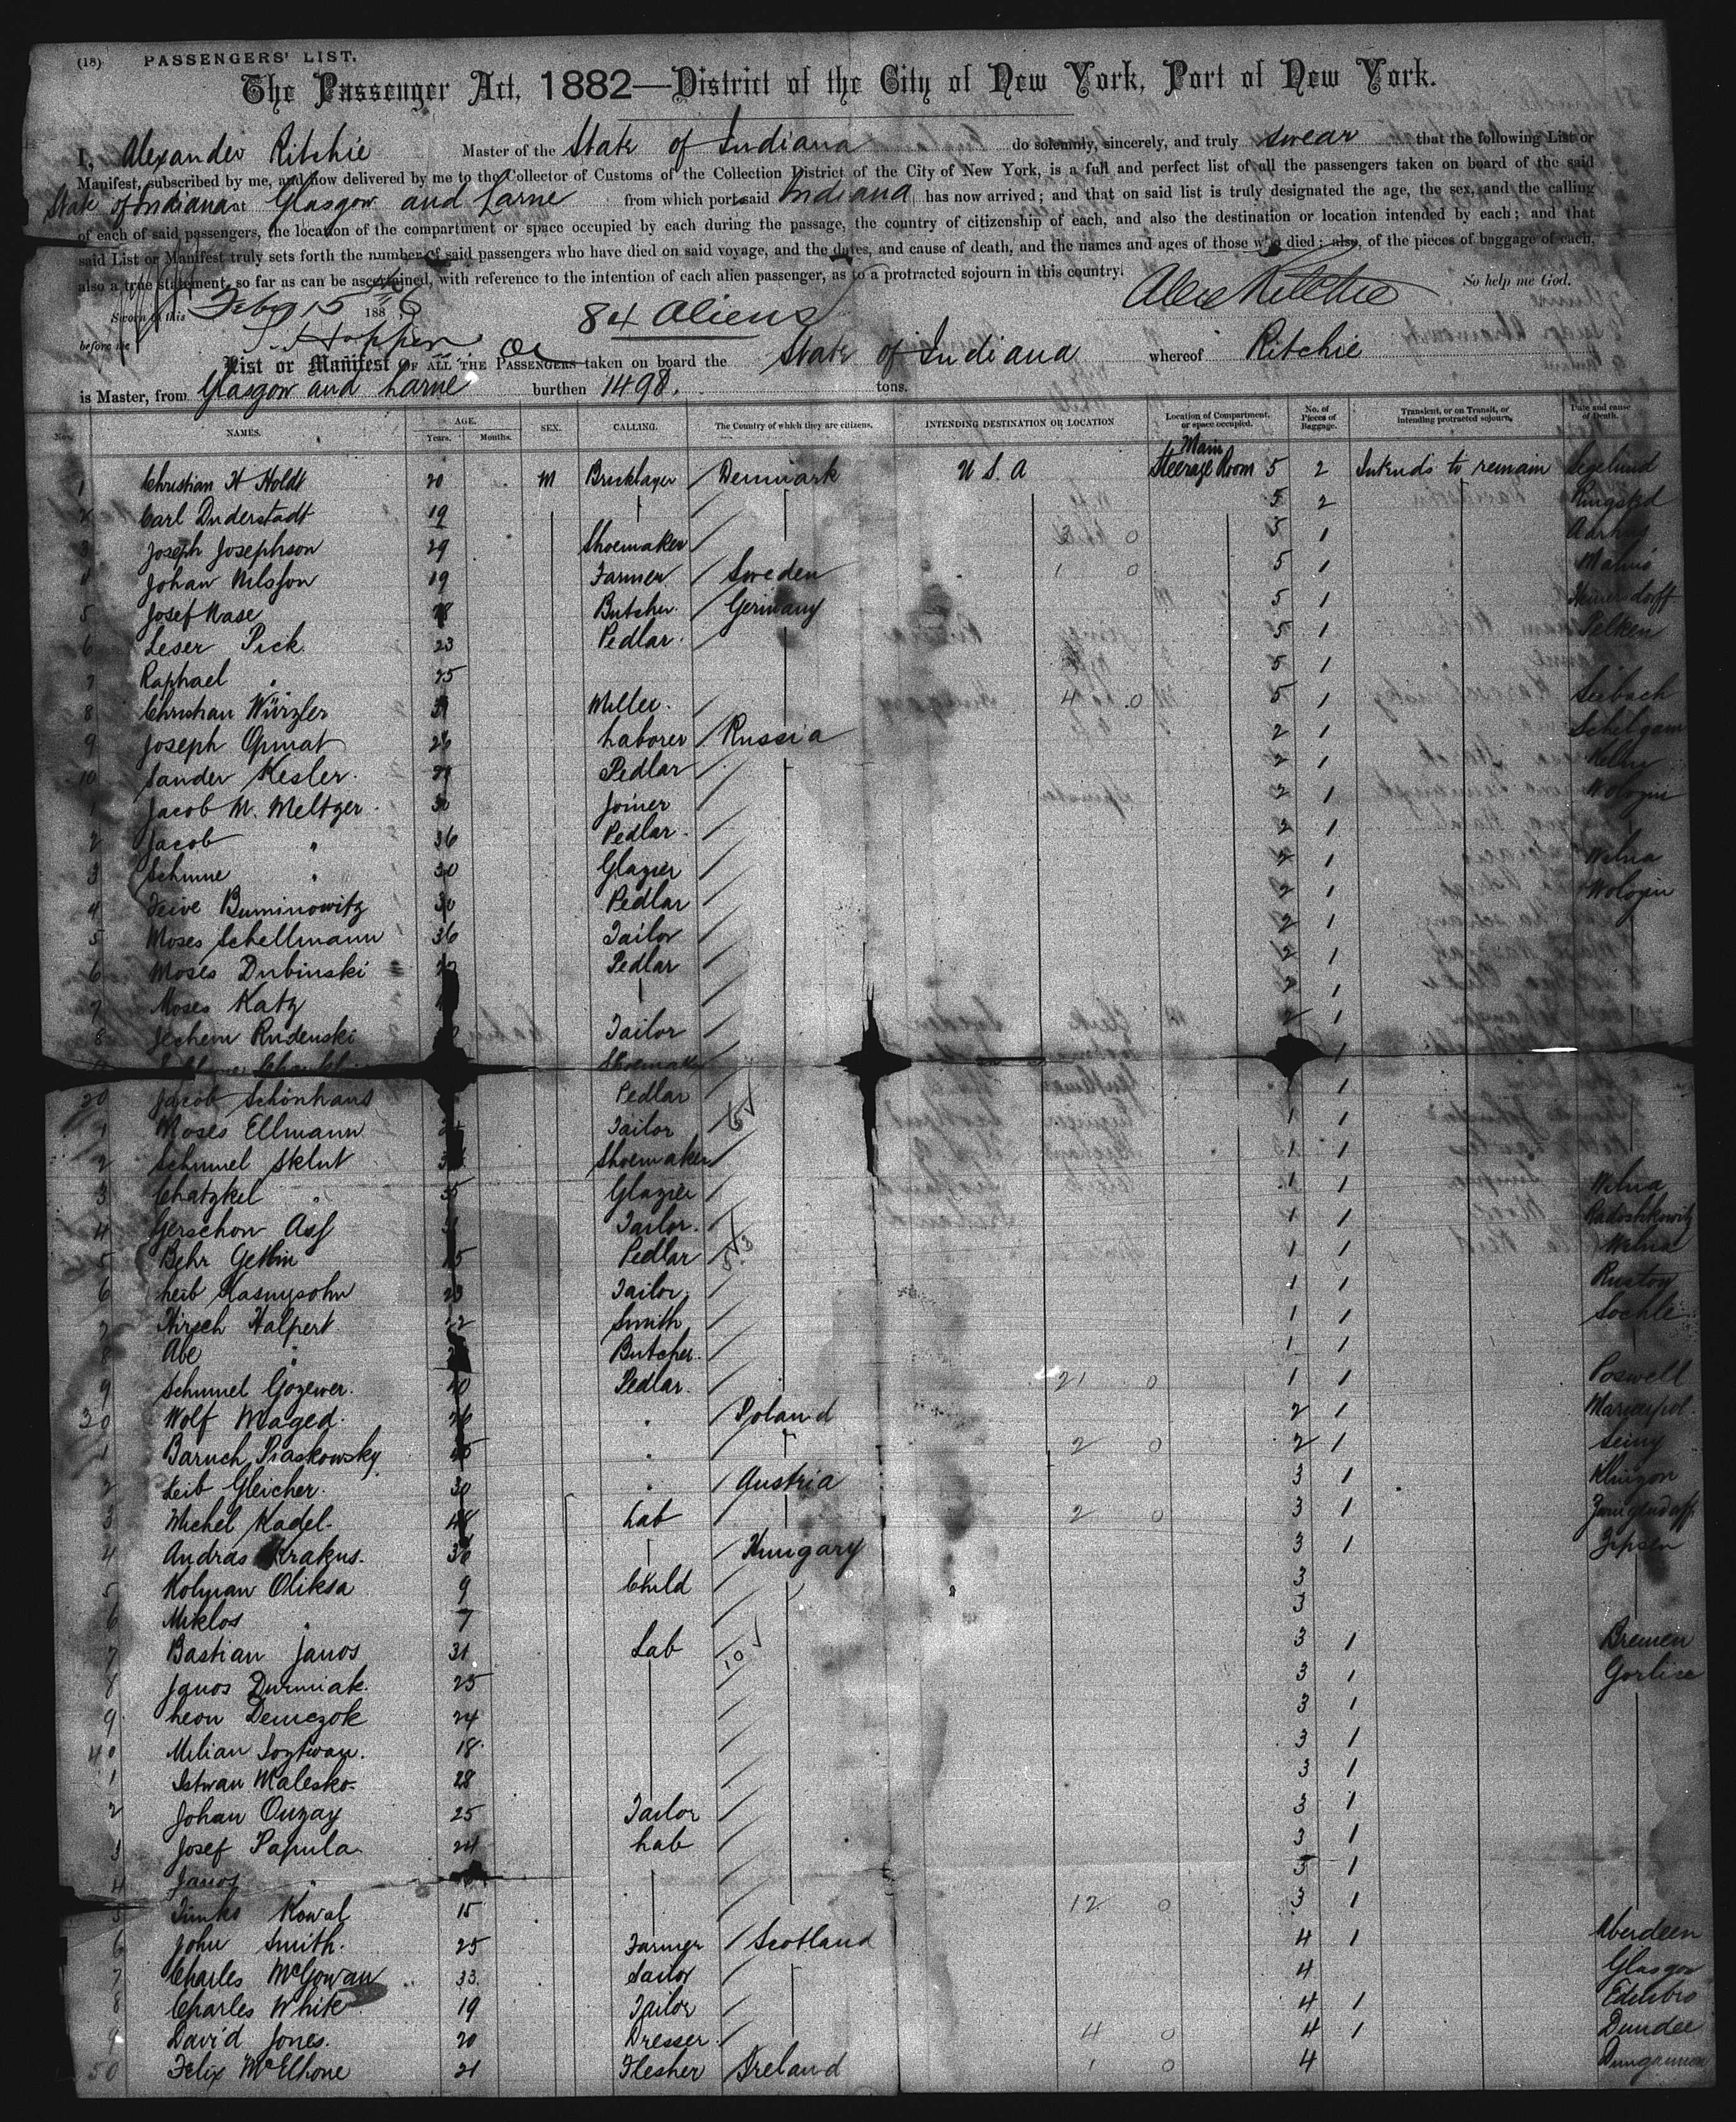 (18) PASSENGERS' LIST.
The Passenger Act, 1882—District of the City of New York, Port of New York.
I, Alexander Ritchie Master of the State of Indiana do solemnly, sincerely, and truly swear that the following List or
Manifest, subscribed by me, and now delivered by me to the Collector of Customs of the Collection District of the City of New York, is a full and perfect list of all the passengers taken on board of the said
State of Indiana at Glasgow and Larne from which port said Indiana has now arrived; and that on said list is truly designated the age, the sex, and the calling
of each of said passengers, the location of the compartment or space occupied by each during the passage, the country of citizenship of each, and also the destination or location intended by each; and that
said List or Manifest truly sets forth the number of said passengers who have died on said voyage, and the dates, and cause of death, and the names and ages of those who died; also, of the pieces of baggage of each,
also a true statement, so far as can be ascertained, with reference to the intention of each alien passenger, as to a protracted sojourn in this country. So help me God.
Sworn to this Feby 15 th 1886 84 Aliens Alex Ritchie
before me
List or Manifest OF ALL THE PASSENGERS taken on board the State of Indiana whereof Ritchie
is Master, from Glasgow and Larne burthen 1498. tons.
Nos. NAMES. AGE. Years. Months. SEX. CALLING. The Country of which they are citizens. INTENDING DESTINATION OR LOCATION Location of Compartment, or space occupied. No. of Pieces of Baggage. Transient, or on Transit, or intending protracted sojourn. Date and cause of Death.
1 Christian H Holdt 20 M Bricklayer Denmark U.S.A Main Steerage Room 5 2 Intends to remain
2 Carl Duderstadt 19 5 2 Ringsted
3 Joseph Josephson 29 Shoemaker 5 1 Aarhus
4 Johan Nilsson 19 Farmer Sweden 5 1 Malmö
5 Josef Nase Butcher Germany 5 1
6 Leser Pick 23 Pedlar 5 1 Pelken
7 Raphael " 25 5 1
8 Christian Würzler Miller 5 1 Seebach
9 Joseph Opmat 26 Laborer Russia 2 1
10 Sander Kesler Pedlar 2 1
1 Jacob M. Meltzer 30 Joiner 2 1 Wologin
2 Jacob " 36 Pedlar 2 1
3 Schmue " 30 Glazier 2 1 Wilna
4 Feive Buminowitz 30 Pedlar 2 1 Wologin
5 Moses Schellmann 36 Tailor 2 1
6 Moses Dubinski Pedlar 2 1
7 Moses Katz 2 1
8 Jechem Rudenski Tailor 2 1
Shoemaker 1
20 Jacob Schönhaus Pedlar 1 1
1 Moses Ellmann Tailor 1 1
2 Schmuel Sklut Shoemaker 1 1
3 Chatzkel " 35 Glazier 1 1 Wilna
4 Gerschon Ass Tailor 1 1 Radoshkowitz
5 Behr Pedlar 1 1 Wilna
6 Leib Kasmysohn 23 Tailor 1 1
7 Hirsch Halpert 22 Smith 1 1
8 Abe " Butcher 1 1
9 Schmuel Gozewer 40 Pedlar 21 0 1 1 Poswell
30 Wolf Maged 26 " Poland 2 1 Mariampol
1 Baruch Piaskowsky " 2 0 2 1 Seiny
2 Leib Gleicher 30 " Austria 3 1
3 Michel Kadel 48 Lab 2 0 3 1
4 Andras Krakus 36 Hungary 3 1 Zipsen
5 Kolyman Oliksa 9 Child 3
6 Miklos " 7 3
7 Bastian Janos 31 Lab 3 1 Bremen
8 Janos Durniak 25 3 1 Gorlice
9 Leon Demczok 24 3 1
40 Milian 18 3 1
1 Istwan Malesko 28 3 1
2 Johan Onzay 25 Tailor 3 1
3 Josef Papula 24 Lab 3 1
4 Janos " 3 1
5 Kowal 15 12 0 3 1
6 John Smith 25 Farmer Scotland 4 1 Aberdeen
7 Charles McGowan 33 Sailor 4 Glasgow
8 Charles White 19 Tailor 4 1 Edinbro
9 David Jones 20 Dresser 4 0 4 1 Dundee
50 Felix McElhone 21 Flesher Ireland 1 0 4 Dungannon